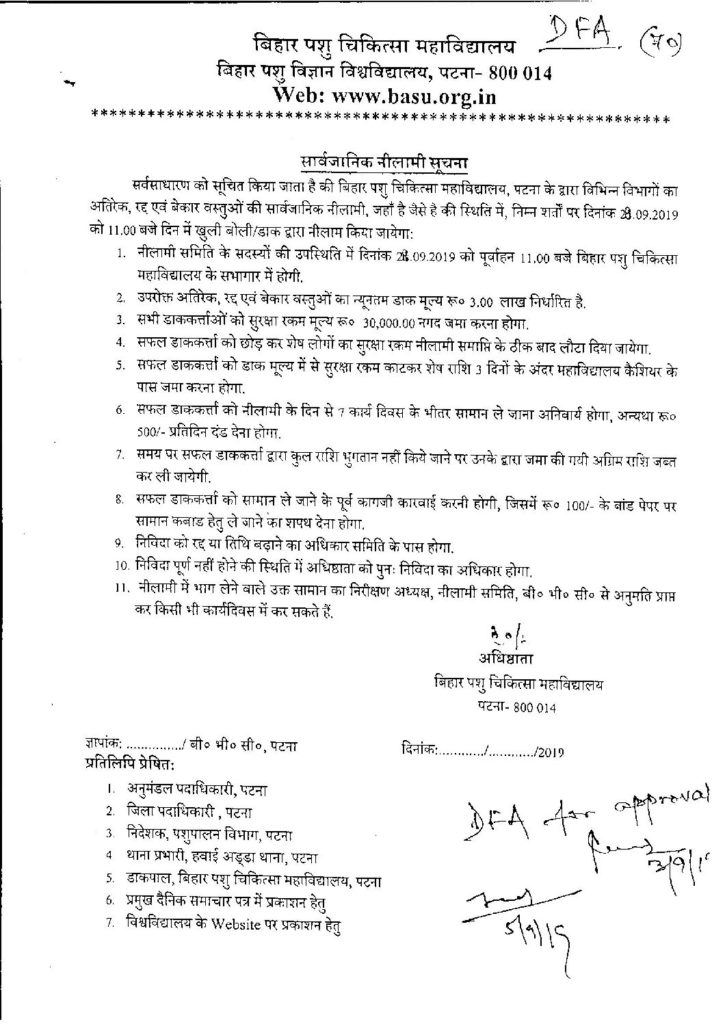 DFA (70)
बिहार पशु चिकित्सा महाविद्यालय
बिहार पशु विज्ञान विश्वविद्यालय, पटना- 800 014
Web: www.basu.org.in
**********************************************************
सार्वजानिक नीलामी सूचना
सर्वसाधारण को सूचित किया जाता है की बिहार पशु चिकित्सा महाविद्यालय, पटना के द्वारा विभिन्न विभागों का
अतिरेक, रद्द एवं बेकार वस्तुओं की सार्वजानिक नीलामी, जहाँ है जैसे है की स्थिति में, निम्न शर्तों पर दिनांक 28.09.2019
को 11.00 बजे दिन में खुली बोली/डाक द्वारा नीलाम किया जायेगा:
1. नीलामी समिति के सदस्यों की उपस्थिति में दिनांक 28.09.2019 को पूर्वाहन 11.00 बजे बिहार पशु चिकित्सा
महाविद्यालय के सभागार में होगी.
2. उपरोक्त अतिरेक, रद्द एवं बेकार वस्तुओं का न्यूनतम डाक मूल्य रू० 3.00 लाख निर्धारित है.
3. सभी डाककर्त्ताओं को सुरक्षा रकम मूल्य रू० 30,000.00 नगद जमा करना होगा.
4. सफल डाककर्त्ता को छोड़ कर शेष लोगों का सुरक्षा रकम नीलामी समाप्ति के ठीक बाद लौटा दिया जायेगा.
5. सफल डाककर्त्ता को डाक मूल्य में से सुरक्षा रकम काटकर शेष राशि 3 दिनों के अंदर महाविद्यालय कैशियर के
पास जमा करना होगा.
6. सफल डाककर्त्ता को नीलामी के दिन से 7 कार्य दिवस के भीतर सामान ले जाना अनिवार्य होगा, अन्यथा रू०
500/- प्रतिदिन दंड देना होगा.
7. समय पर सफल डाककर्त्ता द्वारा कुल राशि भुगतान नहीं किये जाने पर उनके द्वारा जमा की गयी अग्रिम राशि जब्त
कर ली जायेगी.
8. सफल डाककर्त्ता को सामान ले जाने के पूर्व कागजी कारवाई करनी होगी, जिसमें रू० 100/- के बांड पेपर पर
सामान कबाड हेतु ले जाने का शपथ देना होगा.
9. निविदा को रद्द या तिथि बढ़ाने का अधिकार समिति के पास होगा.
10. निविदा पूर्ण नहीं होने की स्थिति में अधिष्ठाता को पुनः निविदा का अधिकार होगा.
11. नीलामी में भाग लेने वाले उक्त सामान का निरीक्षण अध्यक्ष, नीलामी समिति, बी० भी० सी० से अनुमति प्राप्त
कर किसी भी कार्यदिवस में कर सकते हैं.
ह०/-
अधिष्ठाता
बिहार पशु चिकित्सा महाविद्यालय
पटना- 800 014
ज्ञापांक: ................/ बी० भी० सी०, पटना दिनांक:............/............/2019
प्रतिलिपि प्रेषित:
1. अनुमंडल पदाधिकारी, पटना
2. जिला पदाधिकारी , पटना
3. निदेशक, पशुपालन विभाग, पटना
4 थाना प्रभारी, हवाई अड्डा थाना, पटना
5. डाकपाल, बिहार पशु चिकित्सा महाविद्यालय, पटना
6. प्रमुख दैनिक समाचार पत्र में प्रकाशन हेतु
7. विश्वविद्यालय के Website पर प्रकाशन हेतु
DFA for approval
5/9/19